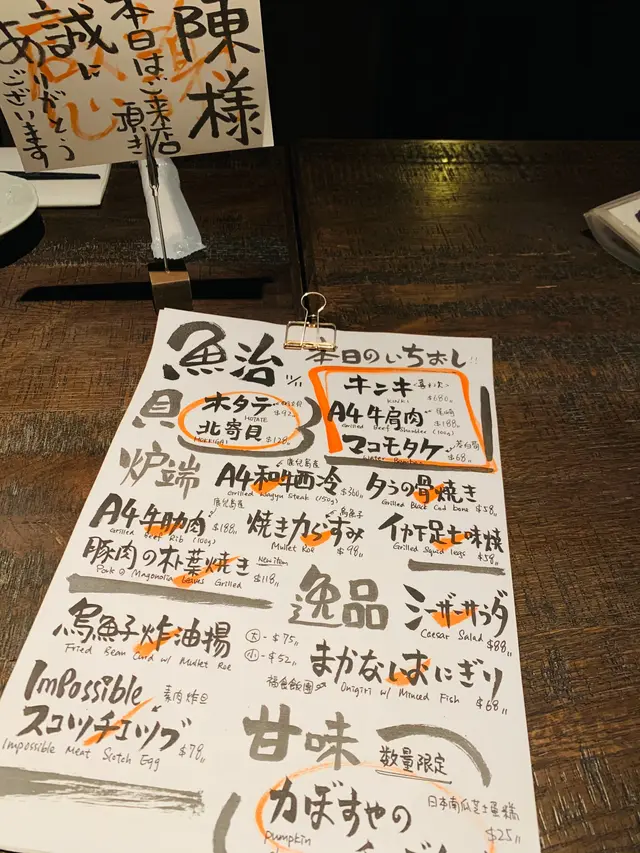 陳様
本日はご来店
頂き
誠に
ありがとう
ございます
魚治 11/11
本日のいちおし!!
キンキ
KINKI $680
A4牛肩肉
Grilled Beef Shoulder (100g) $188
マコモタケ
Water Bamboo $68
貝
ホタテ
HOTATE $92
北寄貝
HOKKIGAI $128
炉端
A4和牛西冷
Grilled Wagyu Steak (150g) $360
鹿児島産
タラの骨焼き
Grilled Black Cod bone $58
A4牛肋肉
Grilled Beef Rib (100g) $188
鹿児島産
焼きカラすみ
Mullet Roe $98
烏魚子
イカ下足七味焼
Grilled Squid legs $58
豚肉の朴葉焼き
New item
Pork @ Magonolia Leaves Grilled $118
逸品
シーザーサラダ
Caesar Salad $88
烏魚子炸油揚
Fried Bean Curd w/ Mullet Roe
大-$75
小-$52
まかないおにぎり
Onigiri w/ Minced Fish $68
Impossible
スコッチエッグ
Impossible Meat Scotch Egg $78
甘味
数量限定
カぼすやの
日本南瓜芝士蛋糕
Pumpkin
$25